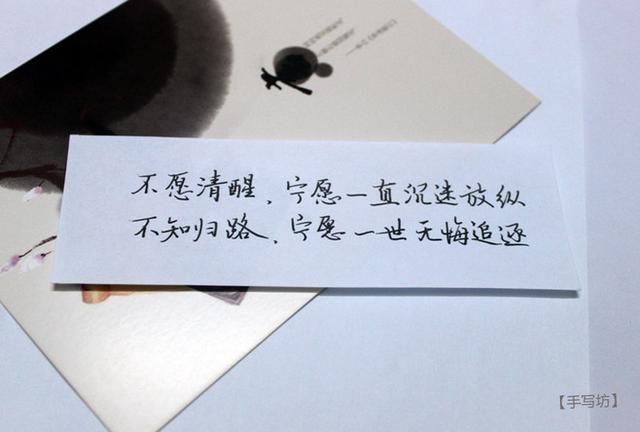 不愿清醒，宁愿一直沉迷放纵
不知归路，宁愿一世无悔追逐
【手写坊】